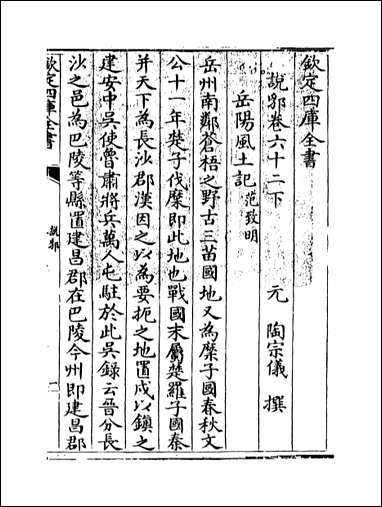 欽定四庫全書
說郛卷六十二下
元 陶宗儀 撰
岳陽風土記 范致明
岳州南鄰蒼梧之野古三苗國地又為麋子國春秋文
公十一年楚子伐麋即此地也戰國末屬楚羅子國秦
并天下為長沙郡漢因之以為要扼之地置戍以鎮之
建安中吳使魯肅將兵萬人屯駐於此吳錄云晉分長
沙之邑為巴陵等縣置建昌郡在巴陵今州即建昌郡
欽定四庫全書
說郛